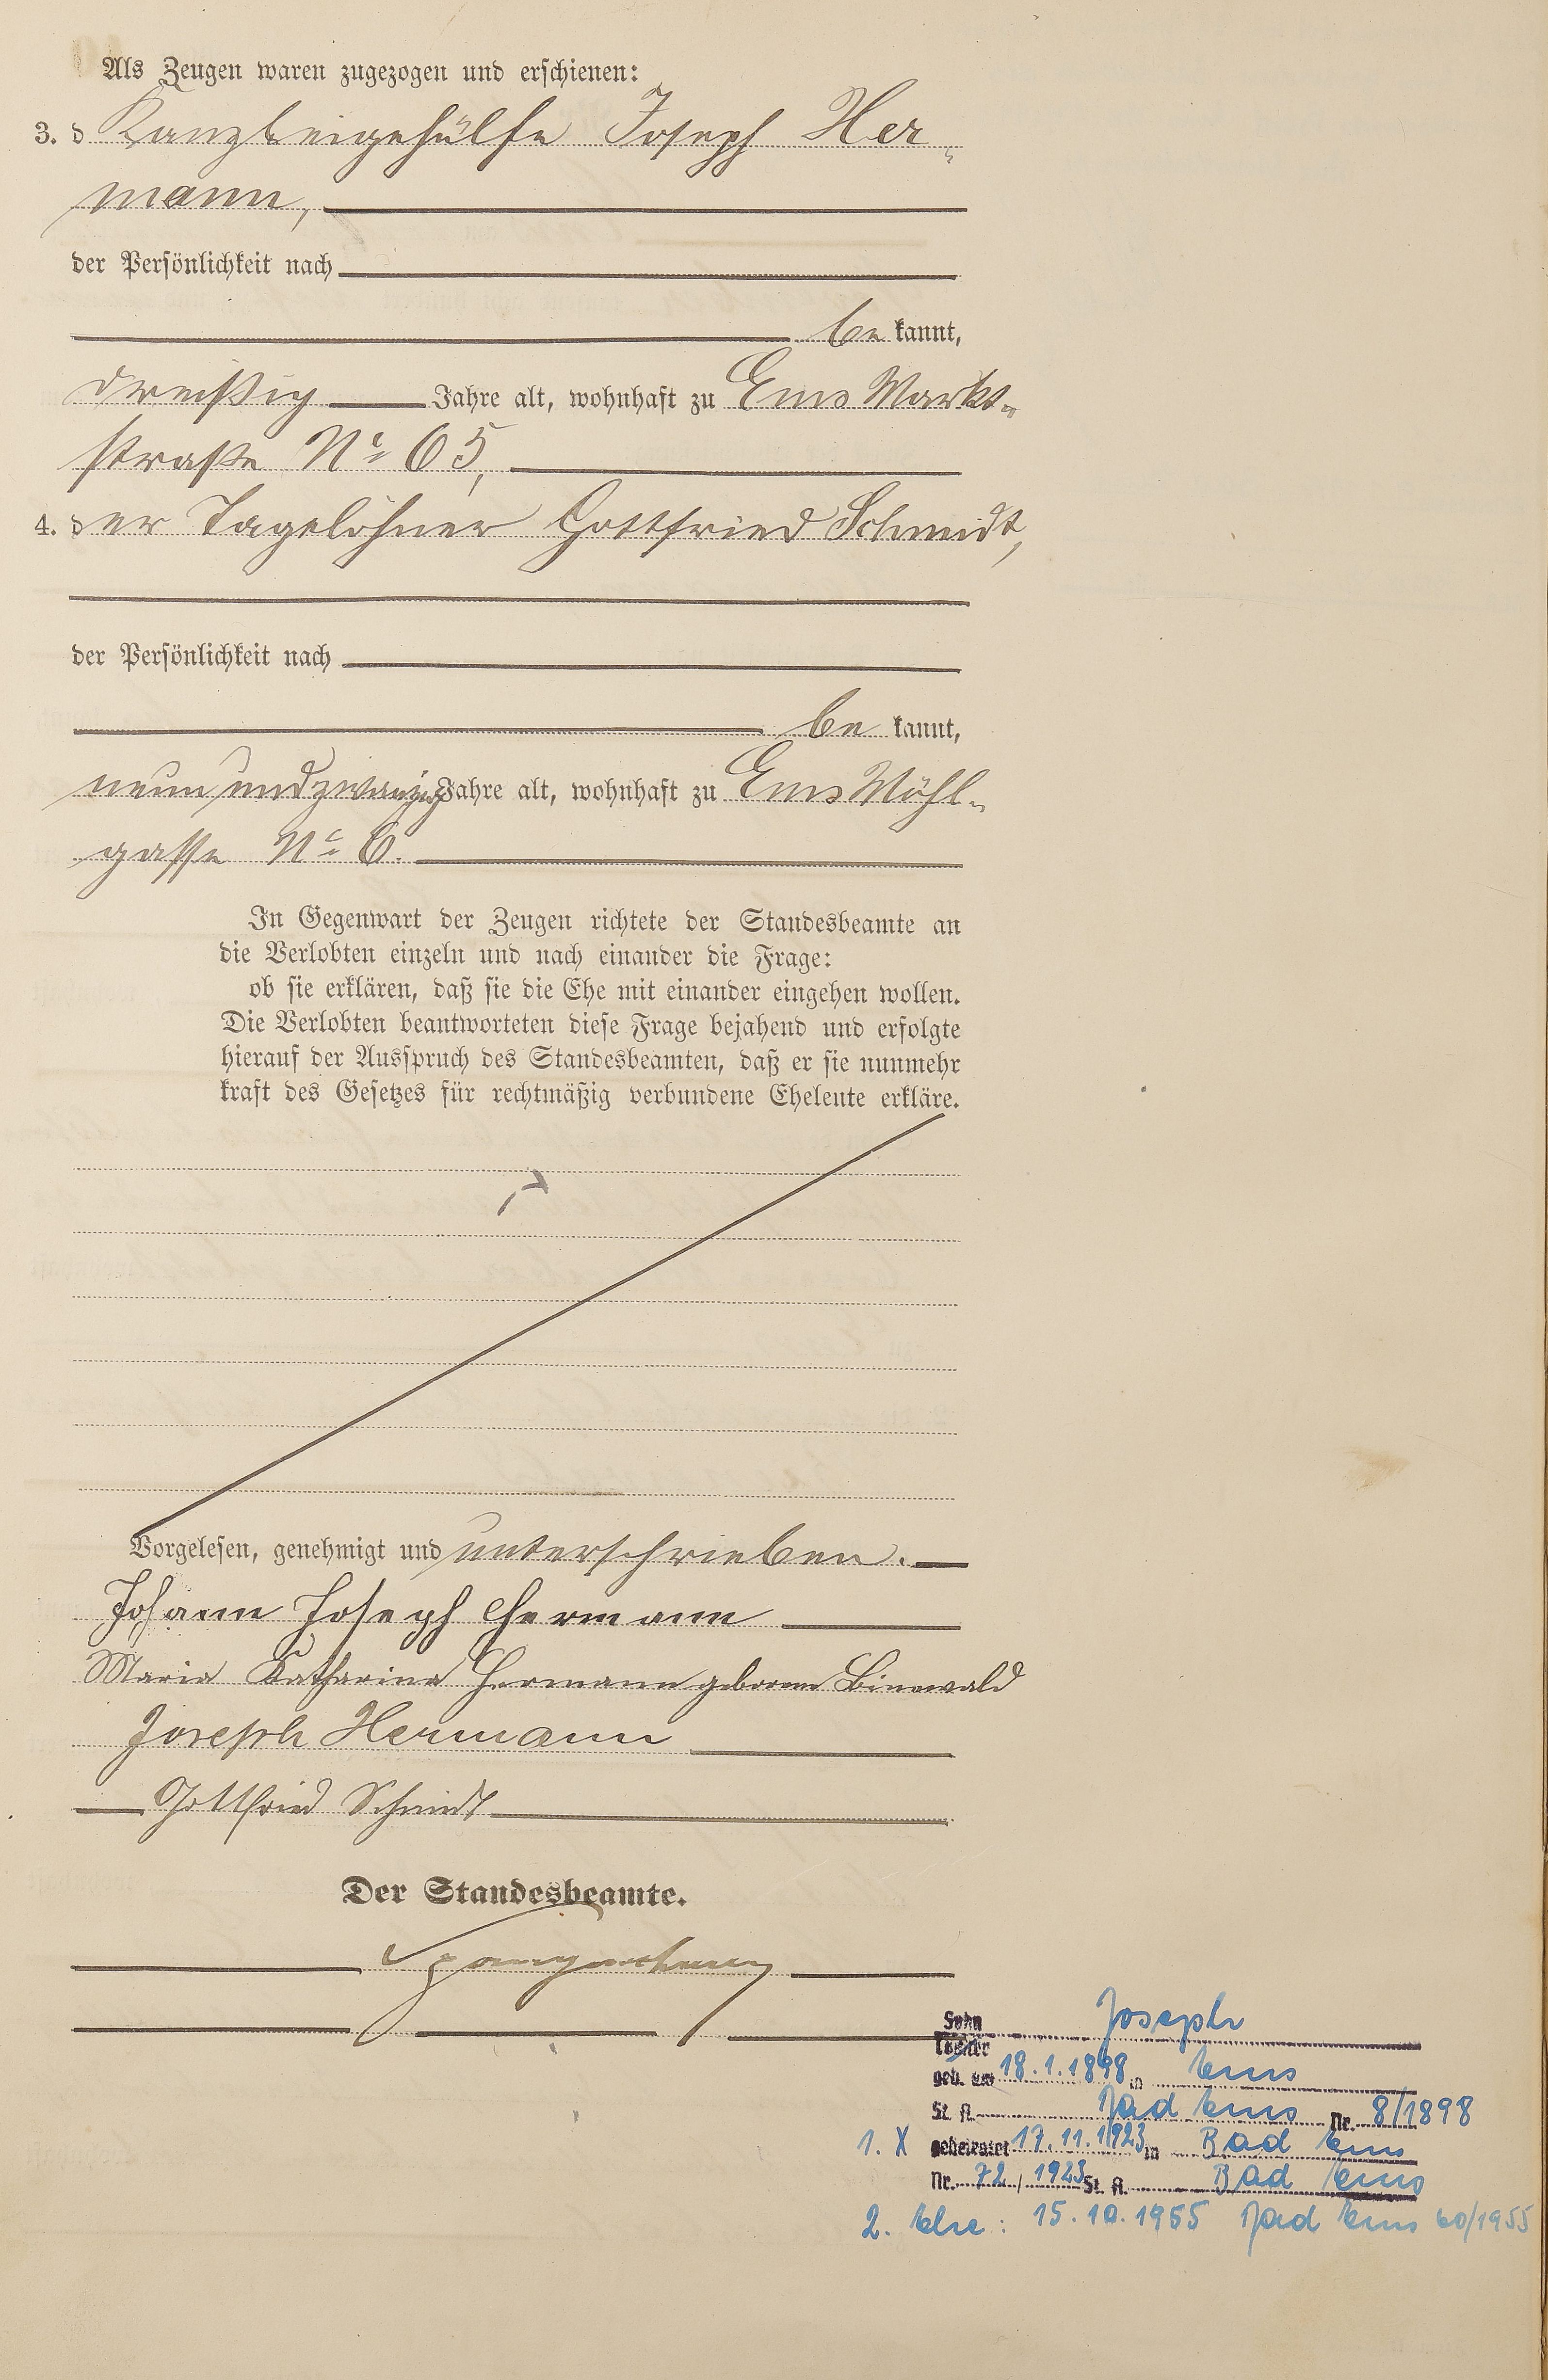 Als Zeugen waren zugezogen und erschienen:
3. d Kanzleigehülfe Joseph Her-
mann,
der Persönlichkeit nach
be kannt,
dreißig Jahre alt, wohnhaft zu Ems Markt-
straße No 65,
4. der Tagelöhner Gottfried Schmidt,
der Persönlichkeit nach
be kannt,
neun und zwanzig Jahre alt, wohnhaft zu Ems Mühl-
gasse No 6.
In Gegenwart der Zeugen richtete der Standesbeamte an
die Verlobten einzeln und nach einander die Frage:
ob sie erklären, daß sie die Ehe mit einander eingehen wollen.
Die Verlobten beantworteten diese Frage bejahend und erfolgte
hierauf der Ausspruch des Standesbeamten, daß er sie nunmehr
kraft des Gesetzes für rechtmäßig verbundene Eheleute erkläre.
Vorgelesen, genehmigt und unterschrieben.
Johann Joseph Hermann
Maria Katharina Hermann geborene
Joseph Hermann
Gottfried Schmidt
Der Standesbeamte.
Sohn Joseph
Tochter
geb. am 18.1.1898 in Ems
St. A. Bad Ems Nr. 8/1898
1. X geheiratet 17.11.1923 in Bad Ems
Nr. 72/1923 St. A. Bad Ems
2. Ehe: 15.10.1955 Bad Ems 60/1955